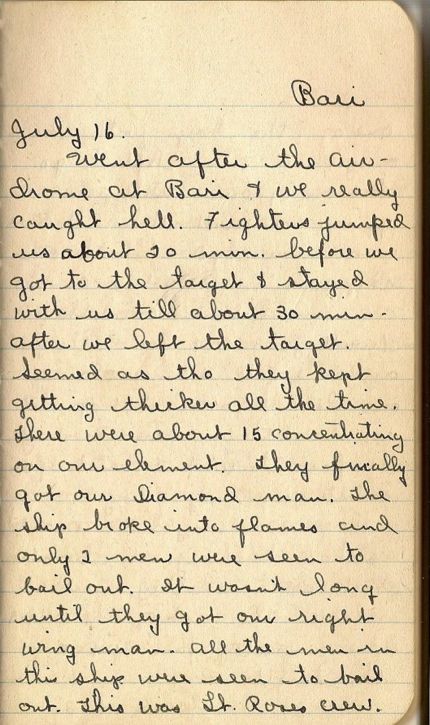 Bari
July 16.
Went after the air-
drome at Bari & we really
caught hell. Fighters jumped
us about 20 min. before we
got to the target & stayed
with us till about 30 min.
after we left the target.
Seemed as tho they kept
getting thicker all the time.
There were about 15 concentrating
on our element. They finally
got our Diamond man. The
ship broke into flames and
only 2 men were seen to
bail out. It wasn't long
until they got our right
wing man. All the men in
this ship were seen to bail
out. This was Lt. Roses crew.